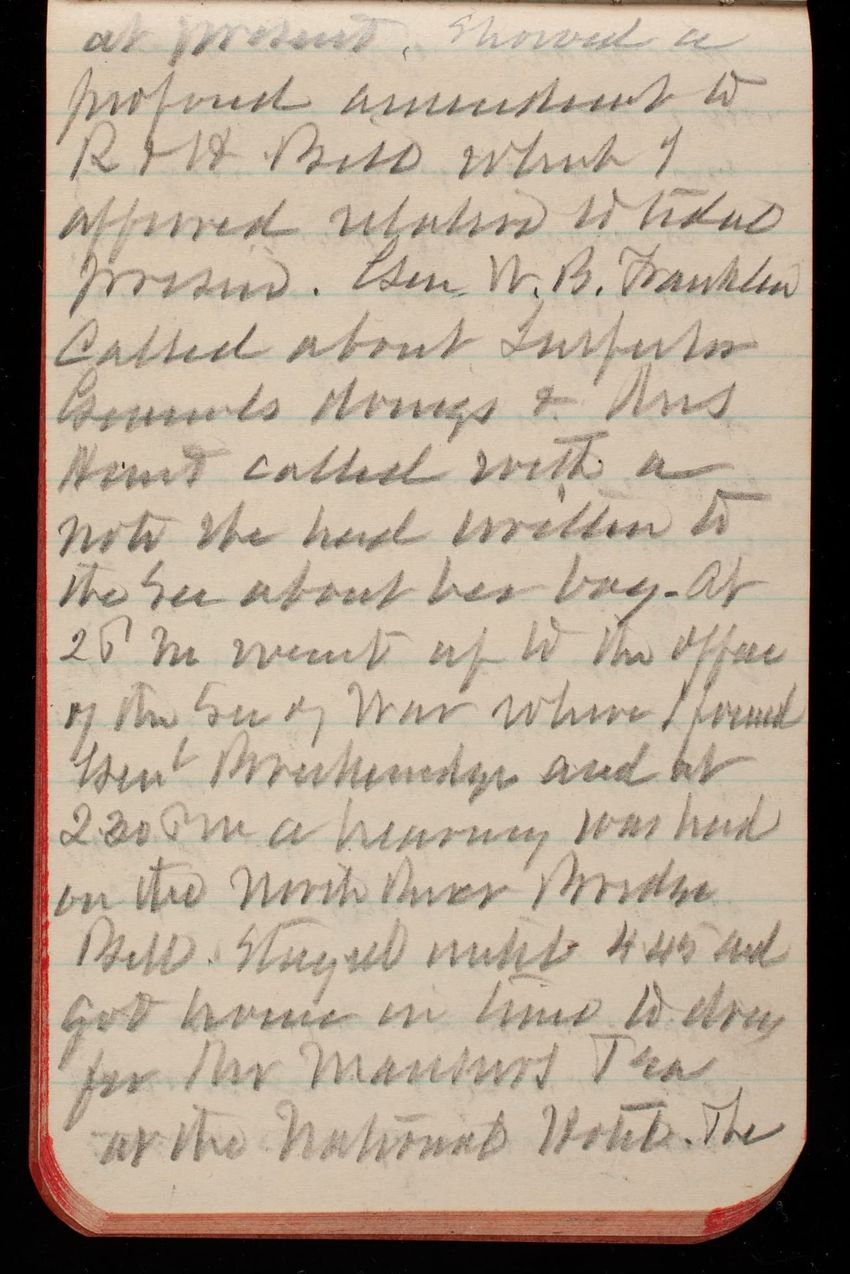 at present. Showed a
proposed amendment to
R & H Bill which I
approved relative to tidal
prism. Gen. W. B. Franklin
Called about Inspector
Generals doings & Mrs
called with a
note she had written to
the Sec about her boy. At
2 P M went up to the office
of the Sec of War where I found
Genl Breckenridge and at
2 30 P M a hearing was had
on the North River Bridge
Bill. Stayed until 4 45 and
got home in time to dress
for Mr Tea
at the National Hotel. The